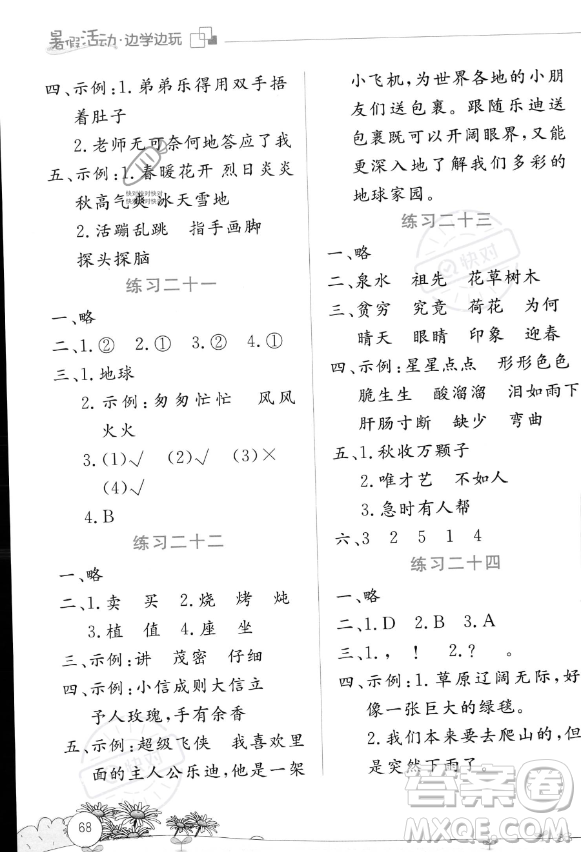 暑假活动·边学边玩
四、示例:1. 弟弟乐得用双手捂
着肚子
2. 老师无可奈何地答应了我
五、示例:1. 春暖花开 烈日炎炎
秋高气爽 冰天雪地
2. 活蹦乱跳 指手画脚
探头探脑
练习二十一
一、略
二、1. ② 2. ① 3. ② 4. ①
三、1. 地球
2. 示例:匆匆忙忙 风风
火火
3. (1)√ (2)√ (3)×
(4)√
4. B
练习二十二
一、略
二、1. 卖 买 2. 烧 烤 炖
3. 植 值 4. 座 坐
三、示例:讲 茂密 仔细
四、示例:小信成则大信立
予人玫瑰,手有余香
五、示例:超级飞侠 我喜欢里
面的主人公乐迪,他是一架
68
小飞机,为世界各地的小朋
友们送包裹。跟随乐迪送
包裹可以开阔眼界,也能
更深入地了解我们多彩的
地球家园。
练习二十三
一、略
二、泉水 祖先 花草树木
三、贫穷 究竟 荷花 为何
晴天 眼睛 印象 迎春
四、示例:星星点点 形形色色
脆生生 酸溜溜 泪如雨下
肝肠寸断 缺少 弯曲
五、1. 秋收万颗子
2. 唯才艺 不如人
3. 急时有人帮
六、3 2 5 1 4
练习二十四
一、略
二、1. D 2. B 3. A
三、1. , ! 2. ? 。
四、示例:1. 草原辽阔无际,好
像一张巨大的绿毯。
2. 我们正要去爬山的,但是
突然下雨了。
快对
快对
答案圈
MXQE.COM